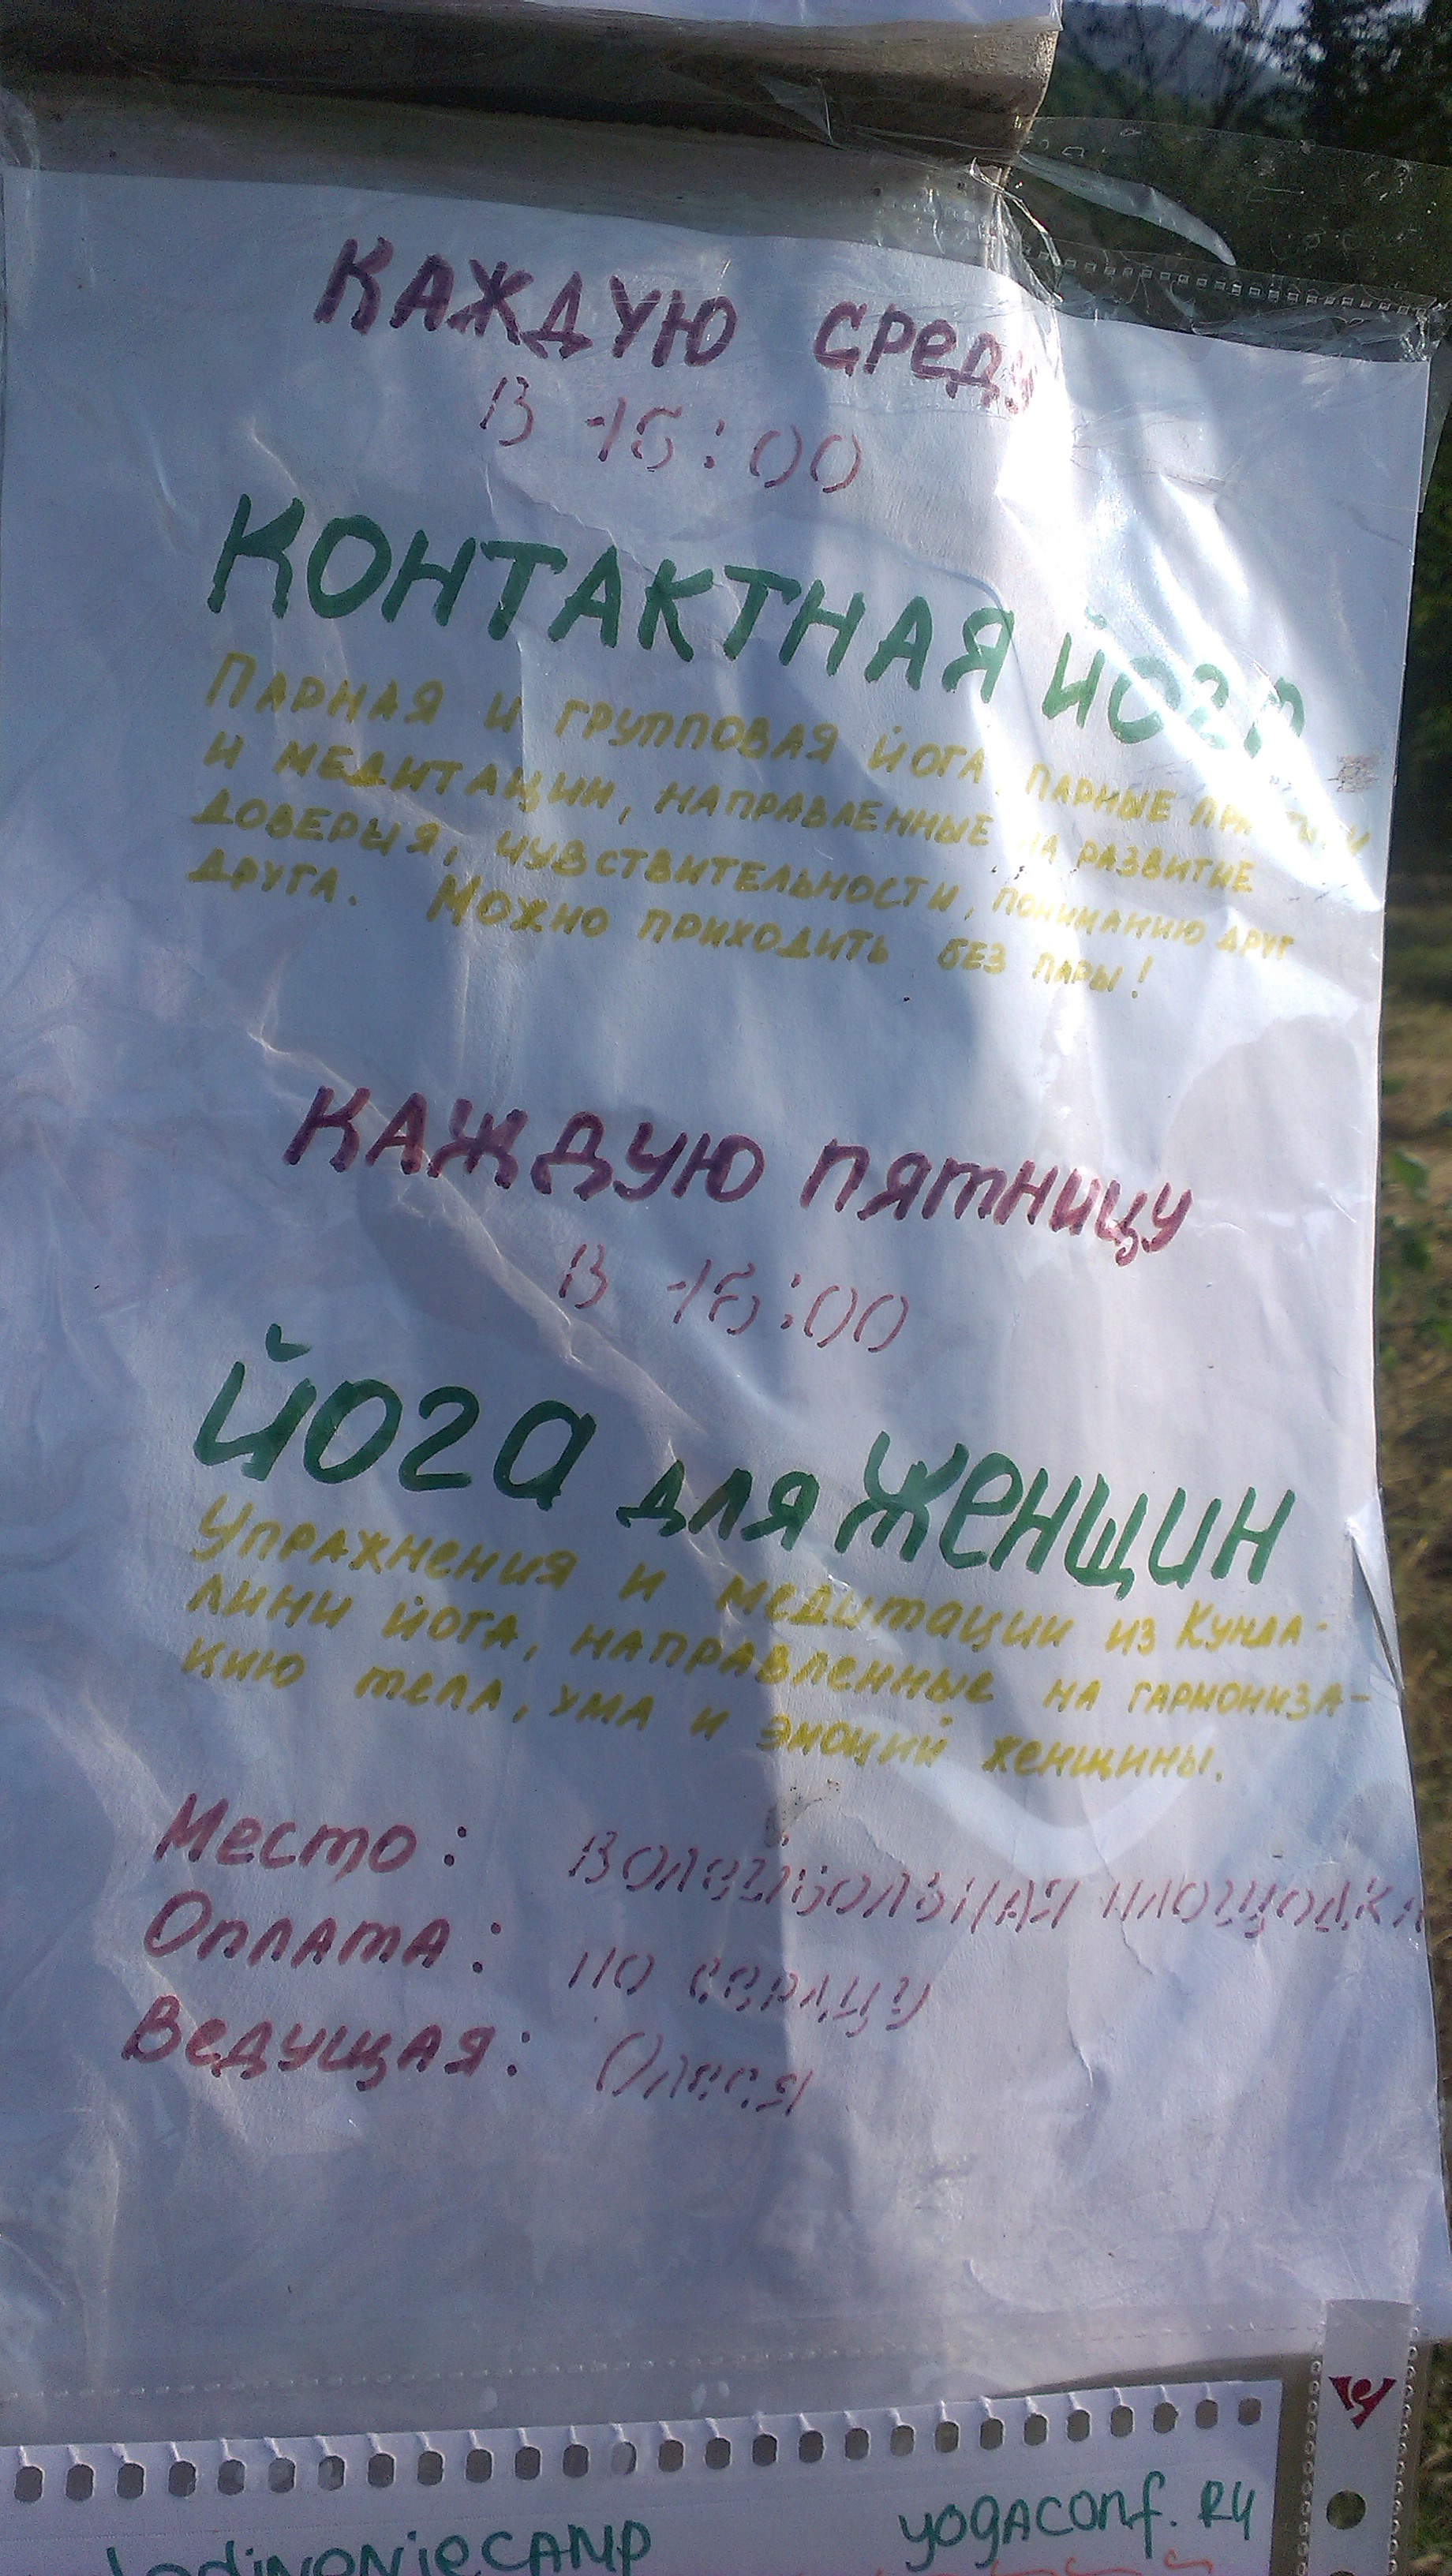 Каждую среду
в 16:00
Контактная йога
Парная и групповая йога, парные практики
и медитации, направленные на развитие
доверия, чувствительности, пониманию друг
друга. Можно приходить без пары!
Каждую пятницу
в 16:00
Йога для женщин
Упражнения и медитации из Кунда-
лини йога, направленные на гармониза-
цию тела, ума и эмоций женщины.
Место: волейбольная площадка
Оплата: по сердцу
Ведущая: Олеся
yogaconf.ru